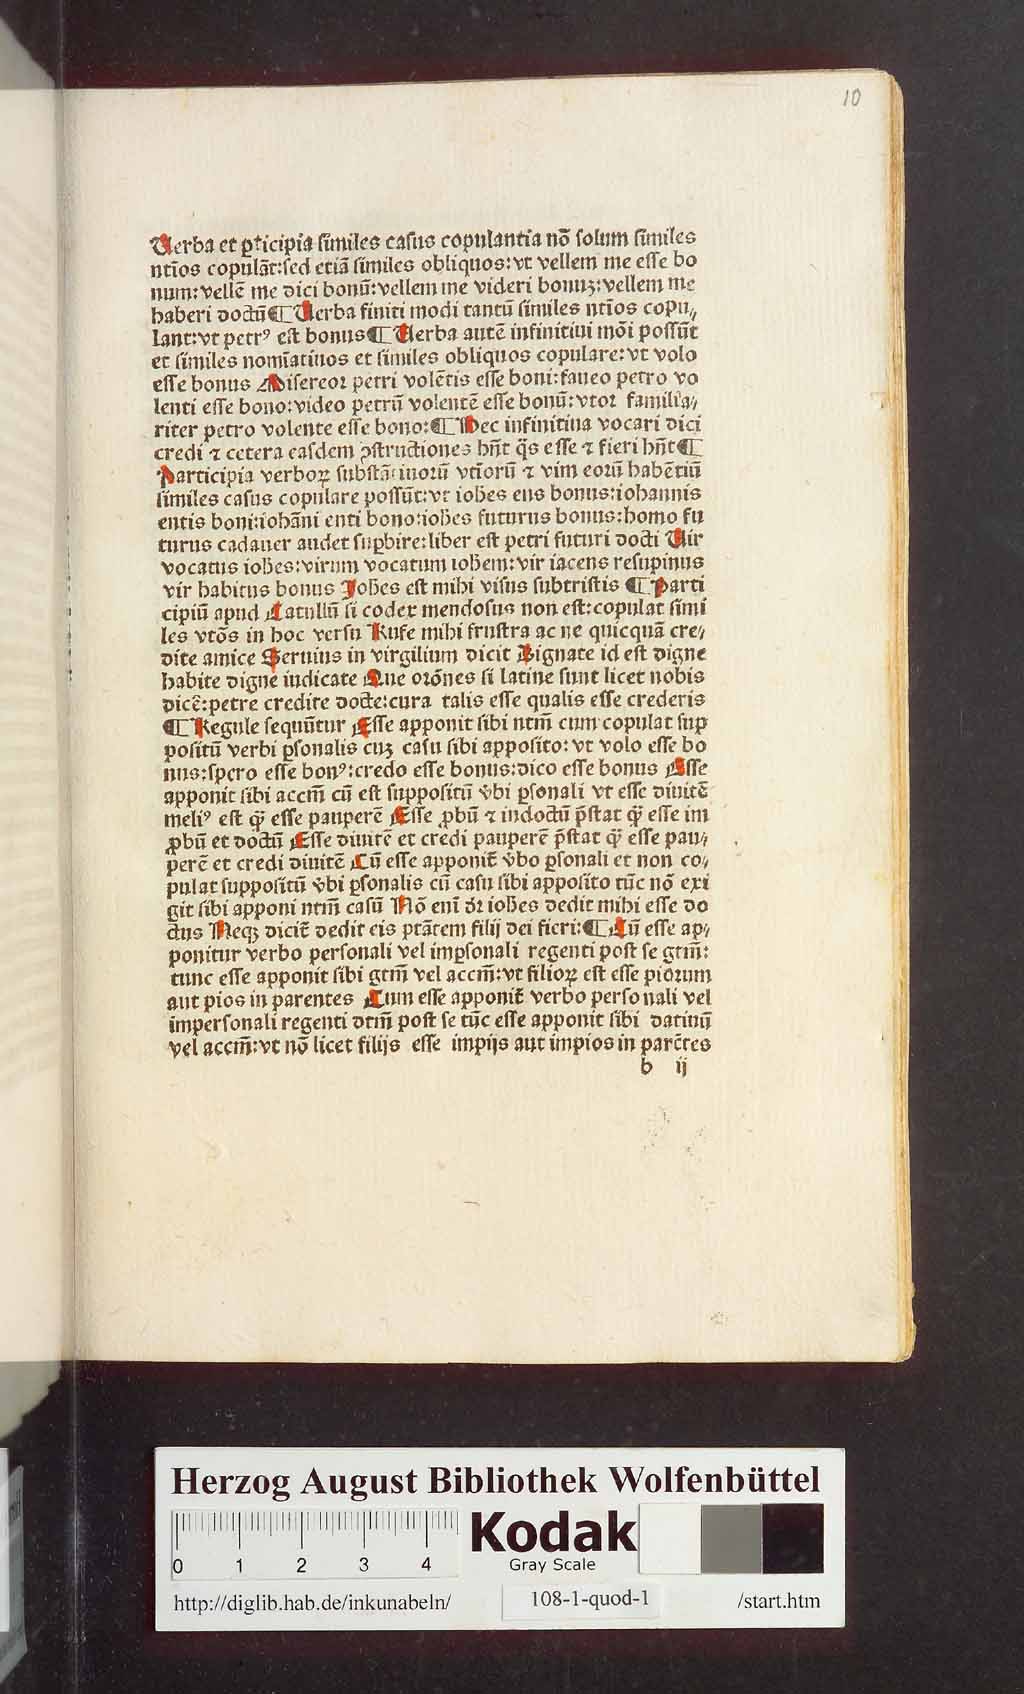 10
Uerba et ꝑticipia similes casus copulantia nõ solum similes
ntĩos copulãt:sed etiã similes obliquos:vt vellem me esse bo
num:vellẽ me dici bonũ:vellem me videri bonuꝫ:vellem me
haberi doctũ¶Uerba finiti modi tantũ similes ntĩos copu⸗
lant:vt petrꝰ est bonus¶Uerba autẽ infinitiui mõi possũt
et similes nomĩatiuos et similes obliquos copulare:vt volo
esse bonus Misereor petri volẽtis esse boni:faueo petro vo
lenti esse bono:video petrũ volentẽ esse bonũ:vtor familia⸗
riter petro volente esse bono:¶Hec infinitiua vocari dici
credi ⁊ cetera easdem ꝯstructiones hñt q̃s esse ⁊ fieri hñt¶
Participia verboꝝ substãtiuorũ vtĩorũ ⁊ vim eorũ habẽtiũ
similes casus copulare possũt:vt iohẽs ens bonus:iohannis
entis boni:iohãni enti bono:iohẽs futurus bonus:homo fu
turus cadauer audet suꝑbire:liber est petri futuri docti Uir
vocatus iohẽs:virum vocatum iohẽm:vir iacens resupinus
vir habitus bonus Johẽs est mihi visus subtristis ¶Parti
cipiũ apud Catullũ si codex mendosus non est:copulat simi
les vtõs in hoc versu Rufe mihi frustra ac ne quicquã cre⸗
dite amice Seruius in virgilium dicit Dignate id est digne
habite digne iudicate Que orõnes si latine sunt licet nobis
dicẽ:petre credite docte:cura talis esse qualis esse crederis
¶Regule sequũtur Esse apponit sibi ntm̃ cum copulat sup
positũ verbi ꝑsonalis cuꝫ casu sibi apposito:vt volo esse bo
nus:spero esse bonꝰ:credo esse bonus:dico esse bonus Esse
apponit sibi accm̃ cũ est suppositũ v̾bi ꝑsonali vt esse diuitẽ
meliꝰ est q̃ꝫ esse pauperẽ Esse ꝓbũ ⁊ indoctũ p̃stat q̃ꝫ esse im
ꝓbũ et doctũ Esse diuitẽ et credi pauperẽ p̃stat q̃ꝫ esse pau⸗
perẽ et credi diuitẽ Cũ esse apponit̃ v̾bo ꝑsonali et non co⸗
pulat suppositũ v̾bi ꝑsonalis cũ casu sibi apposito tũc nõ exi
git sibi apponi ntm̃ casũ Nõ enĩ dr̃ iohẽs dedit mihi esse do
ctus Neqꝫ dicit̃ dedit eis ptãtem filij dei fieri:¶Cũ esse ap⸗
ponitur verbo personali vel imꝑsonali regenti post se gtm̃:
tunc esse apponit sibi gtm̃ vel accm̃:vt filioꝝ est esse piorum
aut pios in parentes Cum esse apponit̃ verbo personali vel
impersonali regenti dtm̃ post se tũc esse apponit sibi datiuũ
vel accm̃:vt nõ licet filijs esse impijs aut impios in parẽtes
b ij
Herzog August Bibliothek Wolfenbüttel
0 1 2 3 4
Kodak
Gray Scale
http://diglib.hab.de/inkunabeln/ 108-1-quod-1 /start.htm